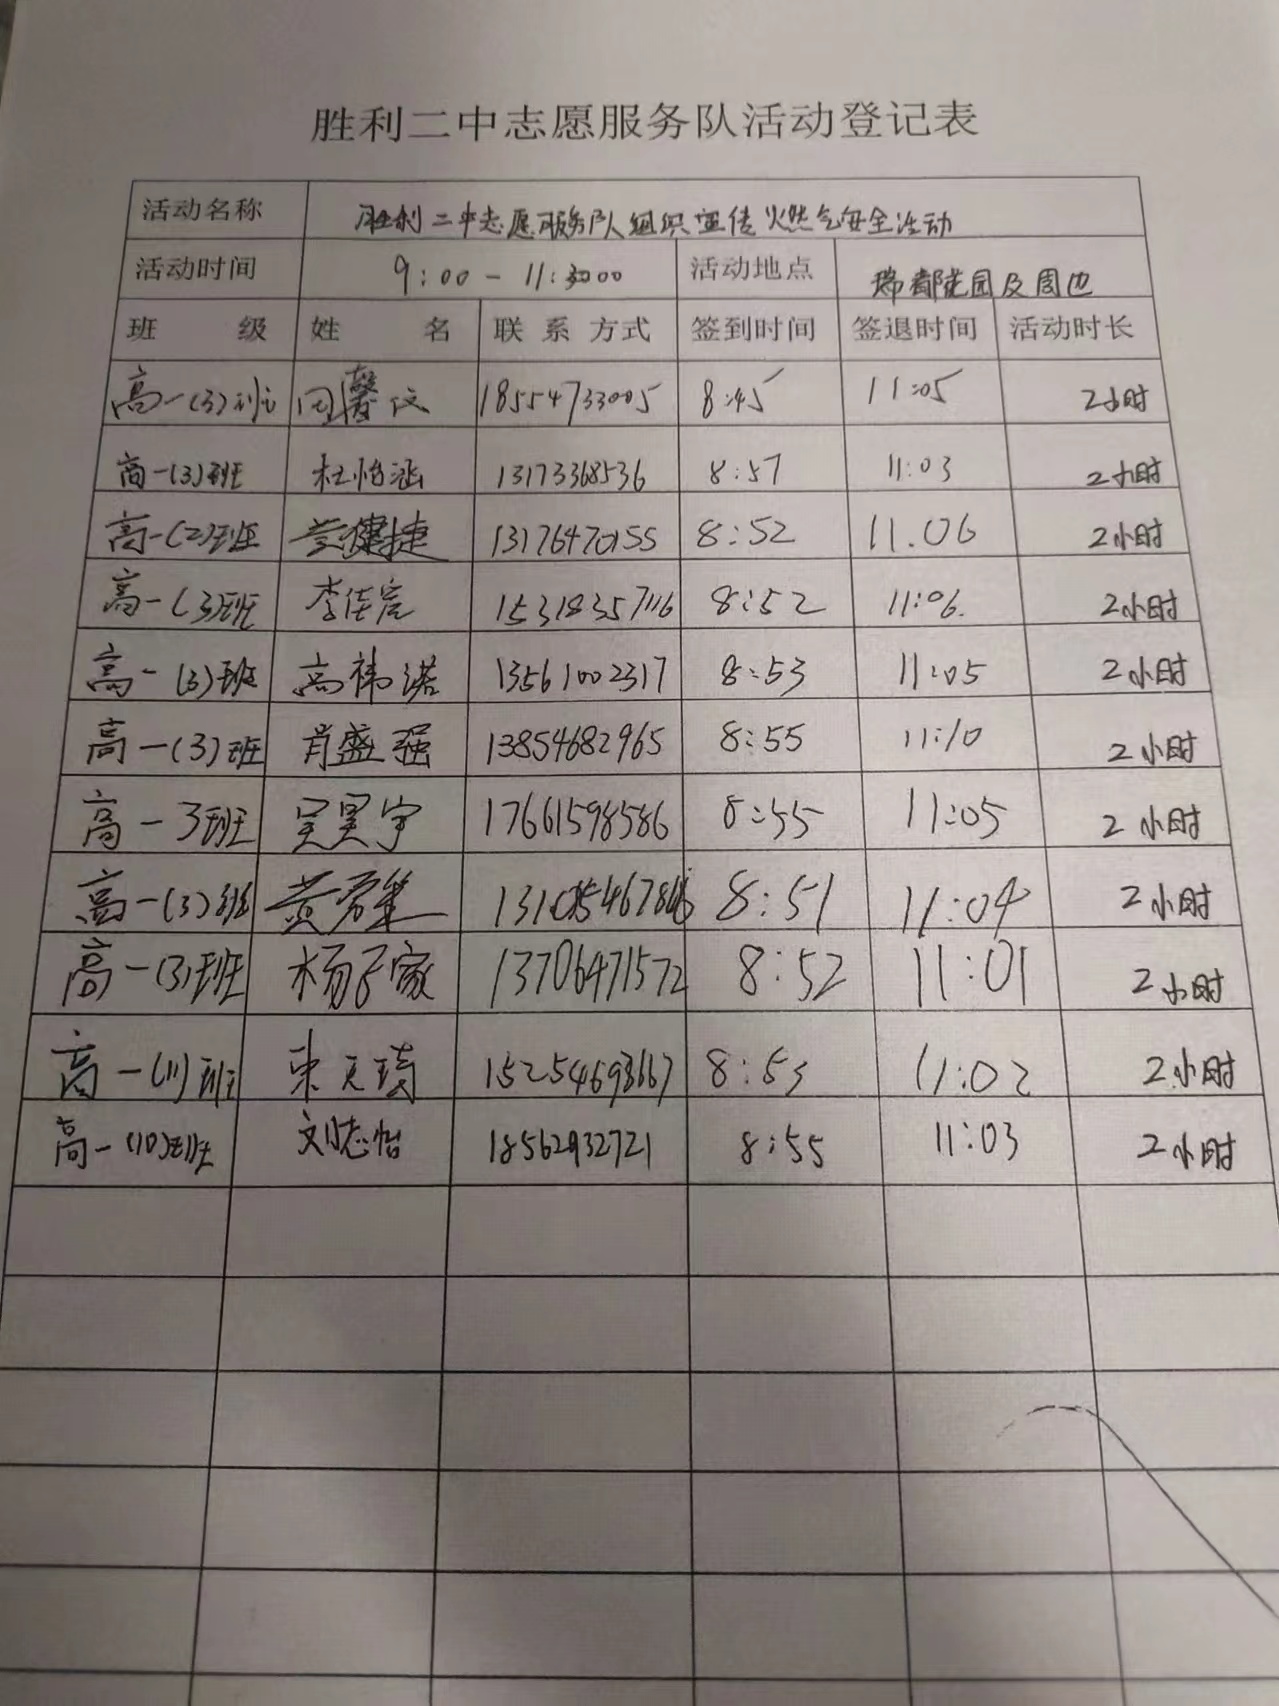 胜利二中志愿服务队活动登记表
活动名称 胜利二中志愿服务队组织宣传燃气安全活动
活动时间 9:00-11:00 活动地点 瑞都花园及周边
班级 姓名 联系方式 签到时间 签退时间 活动时长
高一(3)班 18554733005 8:45 11:05 2小时
高一(3)班 杜怡涵 13173368536 8:57 11:03 2小时
高一(2)班 健捷 13176470155 8:52 11.06 2小时
高一(3)班 李佳宸 15318357116 8:52 11:06 2小时
高一(3)班 高祎诺 13561002317 8:53 11:05 2小时
高一(3)班 肖盛强 13854682965 8:55 11:10 2小时
高一3班 吴昊宇 17661598586 8:55 11:05 2小时
高一(3)班 黄 8:51 11:04 2小时
高一(3)班 杨子家 13706471572 8:52 11:01 2小时
高一(11)班 8:53 11:02 2小时
高一(10)班 刘志怡 18562932721 8:55 11:03 2小时